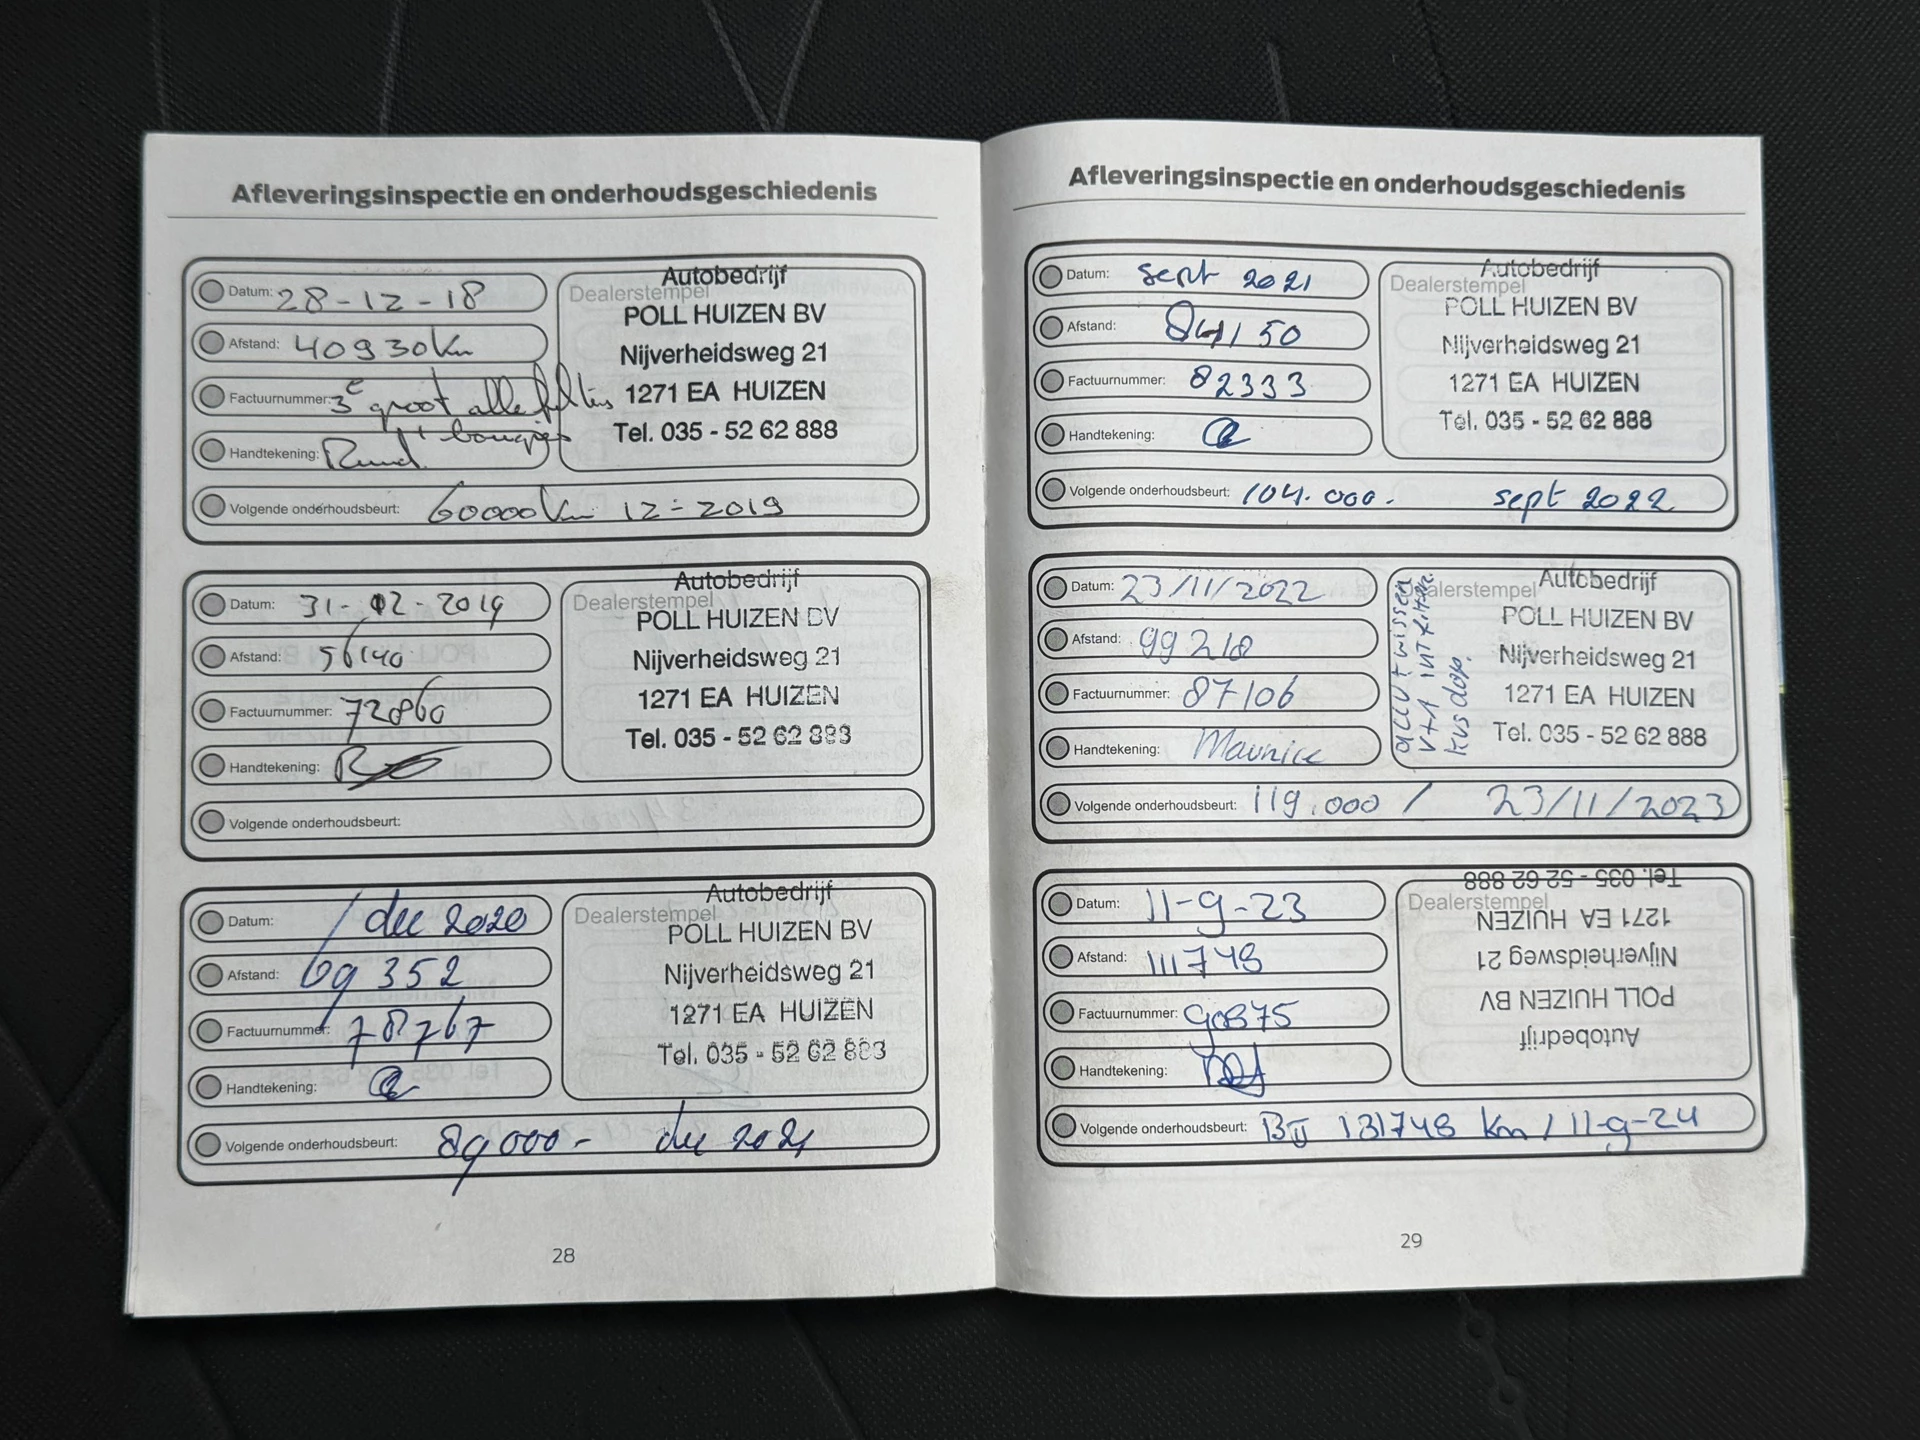 Afleveringsinspectie en onderhoudsgeschiedenis
Datum: 28-12-18
Afstand: 40930 km
Factuurnummer: 3e groot alle filters
+ bougies
Handtekening: Ruud
Volgende onderhoudsbeurt: 60000 km 12-2019
Dealerstempel
Autobedrijf
POLL HUIZEN BV
Nijverheidsweg 21
1271 EA HUIZEN
Tel. 035 - 52 62 888
Datum: 31-12-2019
Afstand: 56140
Factuurnummer: 72860
Handtekening:
Volgende onderhoudsbeurt:
Dealerstempel
Autobedrijf
POLL HUIZEN BV
Nijverheidsweg 21
1271 EA HUIZEN
Tel. 035 - 52 62 888
Datum: dec 2020
Afstand: 69352
Factuurnummer: 78767
Handtekening:
Volgende onderhoudsbeurt: 89000- dec 2021
Dealerstempel
Autobedrijf
POLL HUIZEN BV
Nijverheidsweg 21
1271 EA HUIZEN
Tel. 035 - 52 62 883
28
Afleveringsinspectie en onderhoudsgeschiedenis
Datum: sept 2021
Afstand: 84150
Factuurnummer: 82333
Handtekening:
Volgende onderhoudsbeurt: 104.000. sept 2022
Dealerstempel
Autobedrijf
POLL HUIZEN BV
Nijverheidsweg 21
1271 EA HUIZEN
Tel. 035 - 52 62 888
Datum: 23/11/2022
Afstand: 99218
Factuurnummer: 87106
Handtekening: Maurice
Volgende onderhoudsbeurt: 119.000 / 23/11/2023
accu + wissers
V+A INT Filter
kvs dop.
Dealerstempel
Autobedrijf
POLL HUIZEN BV
Nijverheidsweg 21
1271 EA HUIZEN
Tel. 035 - 52 62 888
Datum: 11-9-23
Afstand: 111748
Factuurnummer: 90875
Handtekening:
Volgende onderhoudsbeurt: 131748 km / 11-9-24
Dealerstempel
Autobedrijf
POLL HUIZEN BV
Nijverheidsweg 21
1271 EA HUIZEN
Tel. 035 - 52 62 888
29